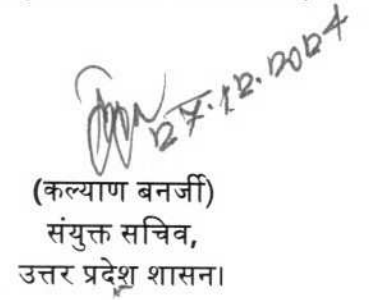 27.12.2024
(कल्याण बनर्जी)
संयुक्त सचिव,
उत्तर प्रदेश शासन।